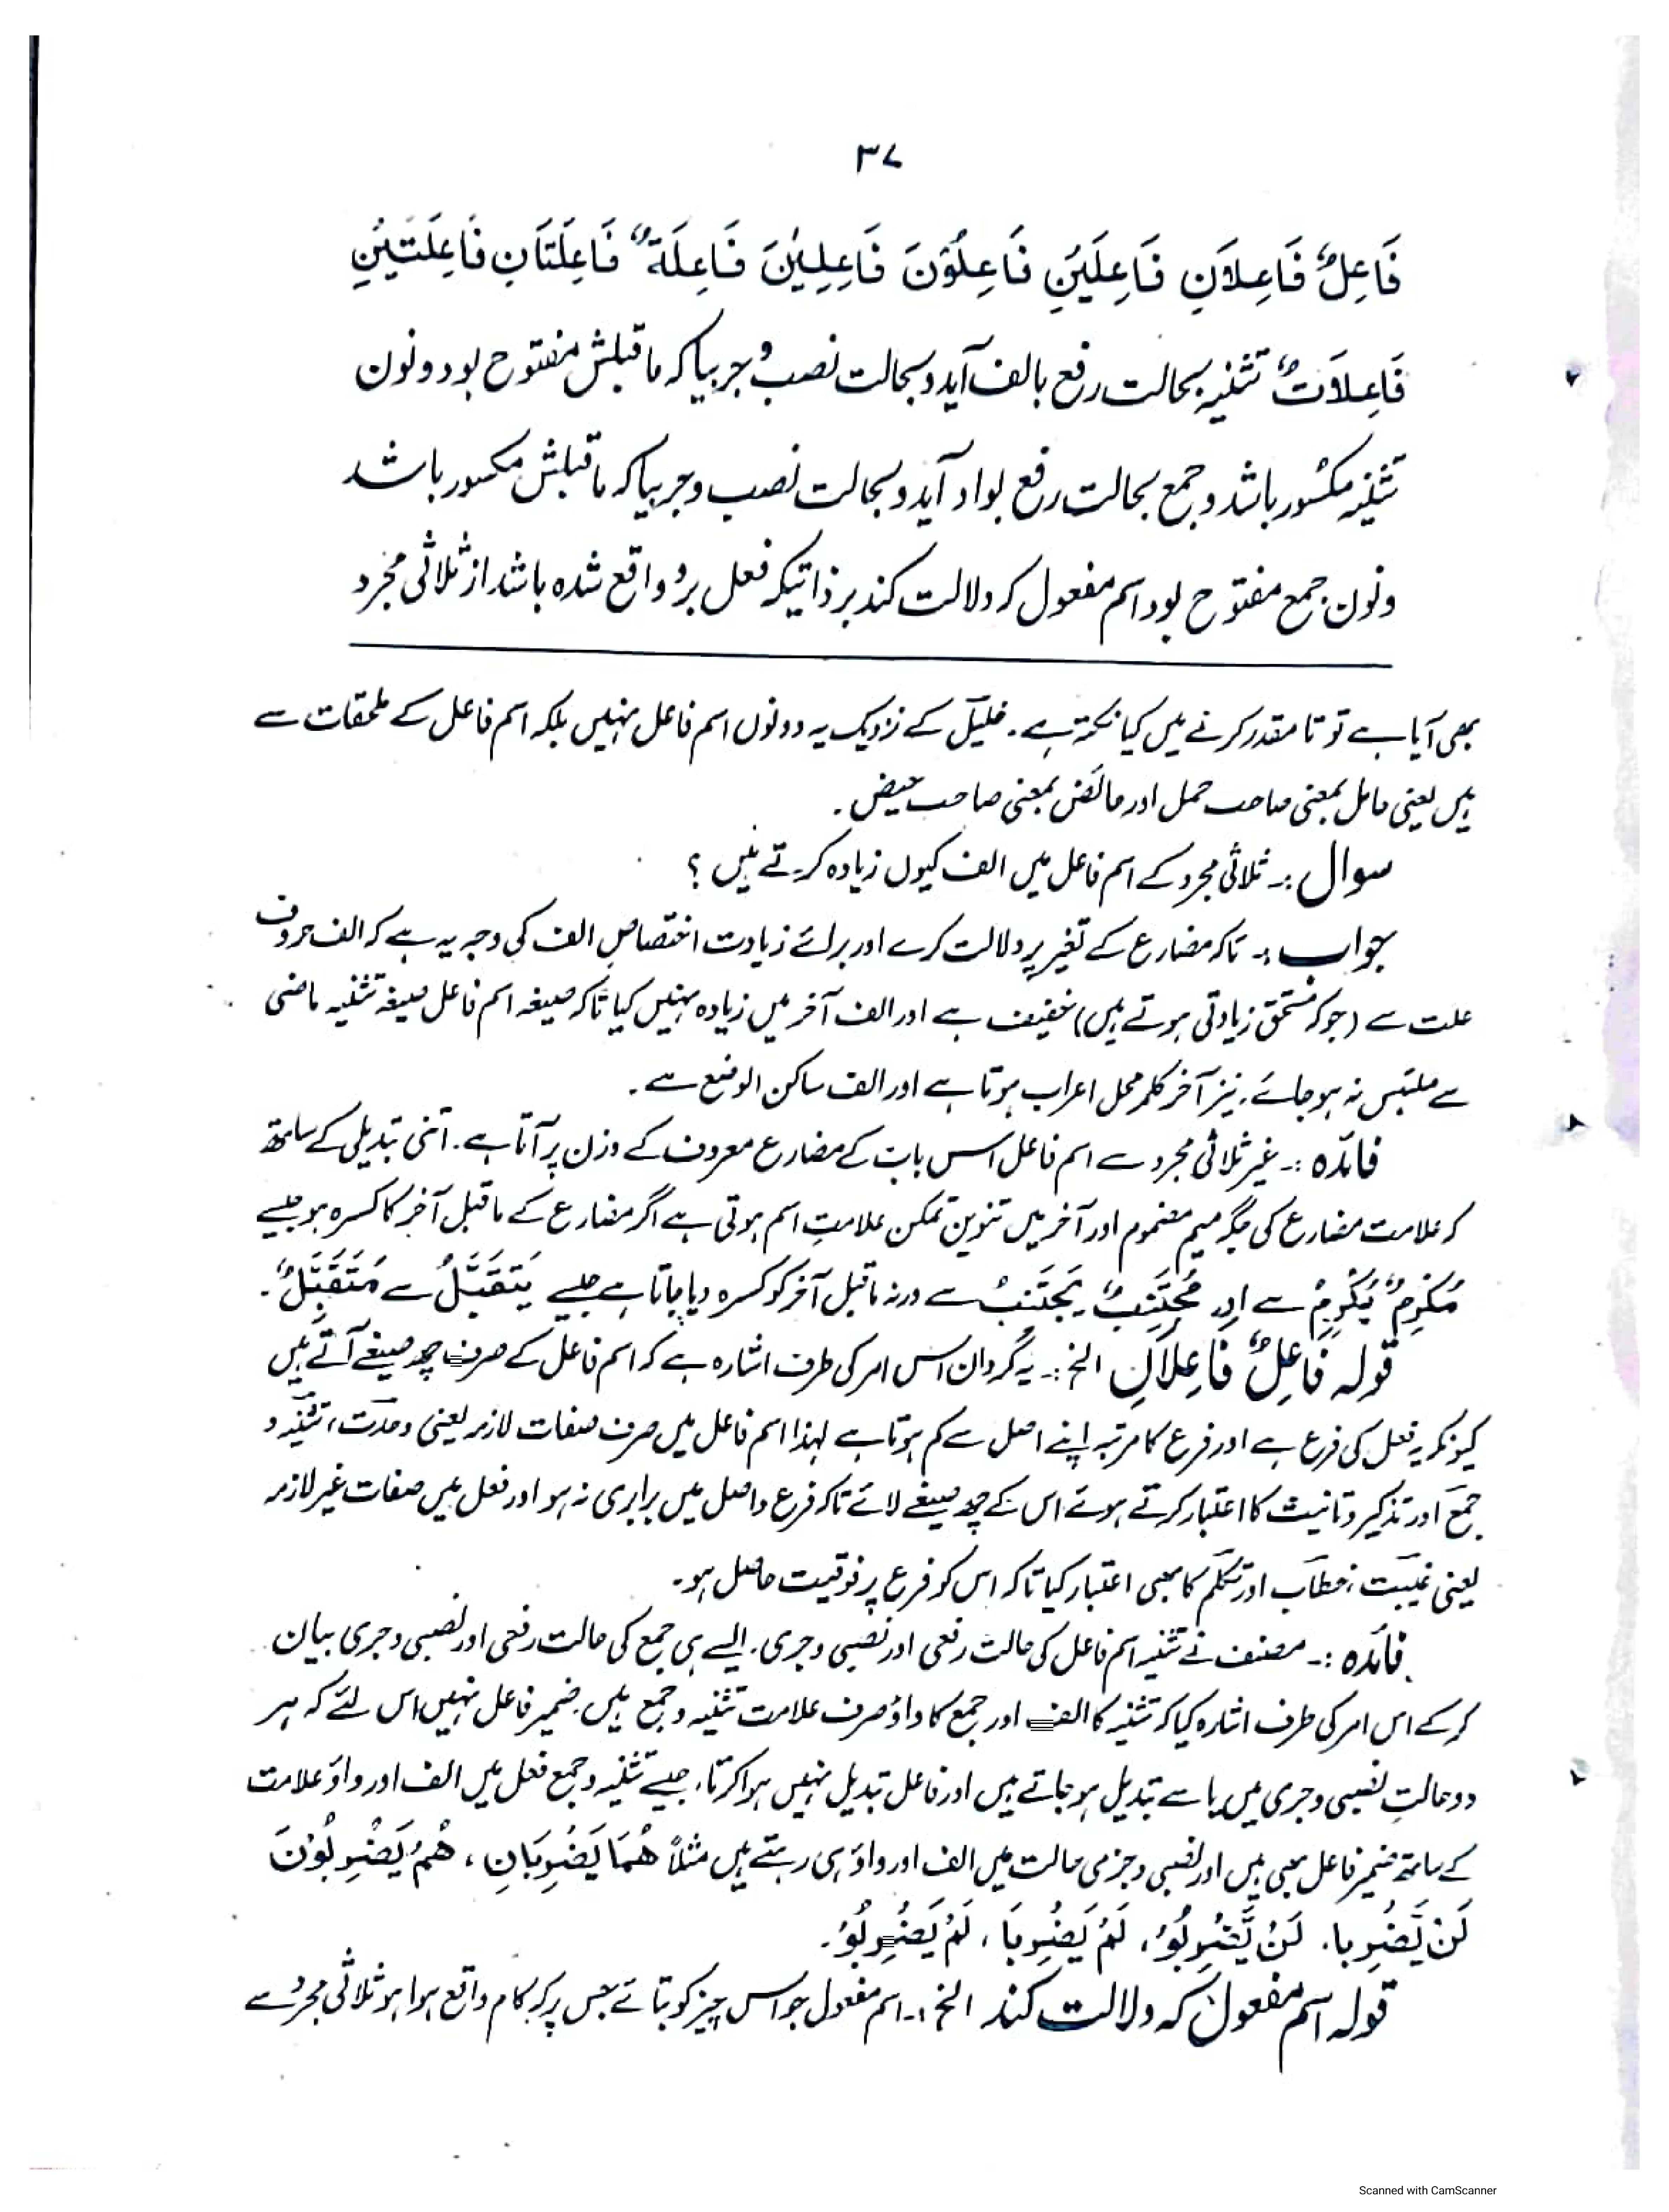 ۳۷
فَاعِلٌ فَاعِلَانِ فَاعِلَيْنِ فَاعِلُوْنَ فَاعِلِيْنَ فَاعِلَةٌ فَاعِلَتَانِ فَاعِلَتَيْنِ
فَاعِلَاتٌ تثنیہ بحالت رفع بالف آید و بحالت نصب و جر بیا کہ ماقبلش مفتوح بود و نون
تثنیہ مکسور باشد و جمع بحالت رفع بواو آید و بحالت نصب و جر بیا کہ ماقبلش مکسور باشد
و نون جمع مفتوح بود اسم مفعول کہ دلالت کند بر ذاتیکہ فعل برو واقع شدہ باشد از ثلاثی مجرد
بھی آیا ہے تو تا مقدر کرنے میں کیا نکتہ ہے۔ خلیل کے نزدیک یہ دونوں اسم فاعل نہیں بلکہ اسم فاعل کے ملحقات سے
ہیں یعنی حامل بمعنی صاحب حمل اور حائض بمعنی صاحب حیض۔
سوال :۔ ثلاثی مجرد کے اسم فاعل میں الف کیوں زیادہ کرتے ہیں ؟
جواب :۔ تاکہ مضارع کے تغیر پر دلالت کرے اور برائے زیادت اختصاص الف کی وجہ یہ ہے کہ الف حروف
علت سے (جو کہ مستحق زیادتی ہوتے ہیں) خفیف ہے اور الف آخر میں زیادہ نہیں کیا تاکہ صیغہ اسم فاعل صیغہ تثنیہ ماضی
سے ملتبس نہ ہو جائے۔ نیز آخر کلمہ محل اعراب ہوتا ہے اور الف ساکن الوضع ہے۔
فائدہ :۔ غیر ثلاثی مجرد سے اسم فاعل اس باب کے مضارع معروف کے وزن پر آتا ہے۔ اتنی تبدیلی کے ساتھ
کہ علامت مضارع کی جگہ میم مضموم اور آخر میں تنوین تمکن علامتِ اسم ہوتی ہے اگر مضارع کے ماقبل آخر کا کسرہ ہو جیسے
مُكْرِمٌ يُكْرِمُ سے اور مُجْتَنِبٌ يَجْتَنِبُ سے ورنہ ماقبل آخر کو کسرہ دیا جاتا ہے جیسے يَتَقَبَّلُ سے مُتَقَبِّلٌ۔
قولہ فَاعِلٌ فَاعِلَانِ الخ :۔ یہ گردان اس امر کی طرف اشارہ ہے کہ اسم فاعل کے صرف چھ صیغے آتے ہیں
کیونکہ یہ فعل کی فرع ہے اور فرع کا مرتبہ اپنے اصل سے کم ہوتا ہے لہذا اسم فاعل میں صرف صفات لازمہ یعنی وحدت، تثنیہ و
جمع اور تذکیر و تانیث کا اعتبار کرتے ہوئے اس کے چھ صیغے لائے تاکہ فرع و اصل میں برابری نہ ہو اور فعل میں صفات غیر لازمہ
یعنی غیبت، خطاب اور تکلم کا بھی اعتبار کیا تاکہ اس کو فرع پر فوقیت حاصل ہو۔
فائدہ :۔ مصنف نے تثنیہ اسم فاعل کی حالت رفعی اور نصبی و جری، ایسے ہی جمع کی حالت رفعی اور نصبی و جری بیان
کر کے اس امر کی طرف اشارہ کیا کہ تثنیہ کا الف اور جمع کا واؤ صرف علامت تثنیہ و جمع ہیں۔ ضمیر فاعل نہیں اس لئے کہ ہر
دو حالتِ نصبی و جری میں یا سے تبدیل ہو جاتے ہیں اور فاعل تبدیل نہیں ہوا کرتا، جیسے تثنیہ و جمع فعل میں الف اور واؤ علامت
کے ساتھ ضمیر فاعل بھی ہیں اور نصبی و جزمی حالت میں الف اور واؤ ہی رہتے ہیں مثلاً هُمَا يَضْرِبَانِ، هُمْ يَضْرِبُوْنَ
لَنْ يَّضْرِبَا، لَنْ يَّضْرِبُوْا، لَمْ يَضْرِبَا، لَمْ يَضْرِبُوْا۔
قولہ اسم مفعول کہ دلالت کند الخ :۔ اسم مفعول جو اس چیز کو بتائے جس پر کہ کام واقع ہوا ہو ثلاثی مجرد سے
Scanned with CamScanner